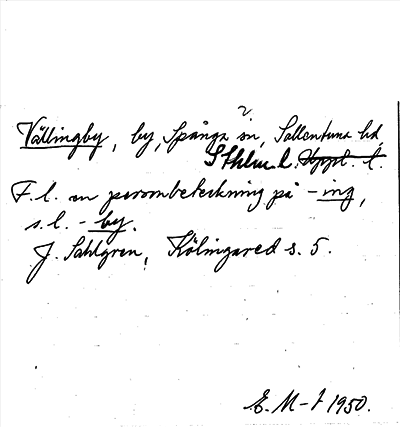 Vällingby, by, Spånga sn, Sollentuna hd,
Sthlm. l. Uppl. l.
F. l. en personbeteckning på -ing,
s. l. - by.
J. Sahlgren, Kölingared s. 5.
E. M-t 1950.